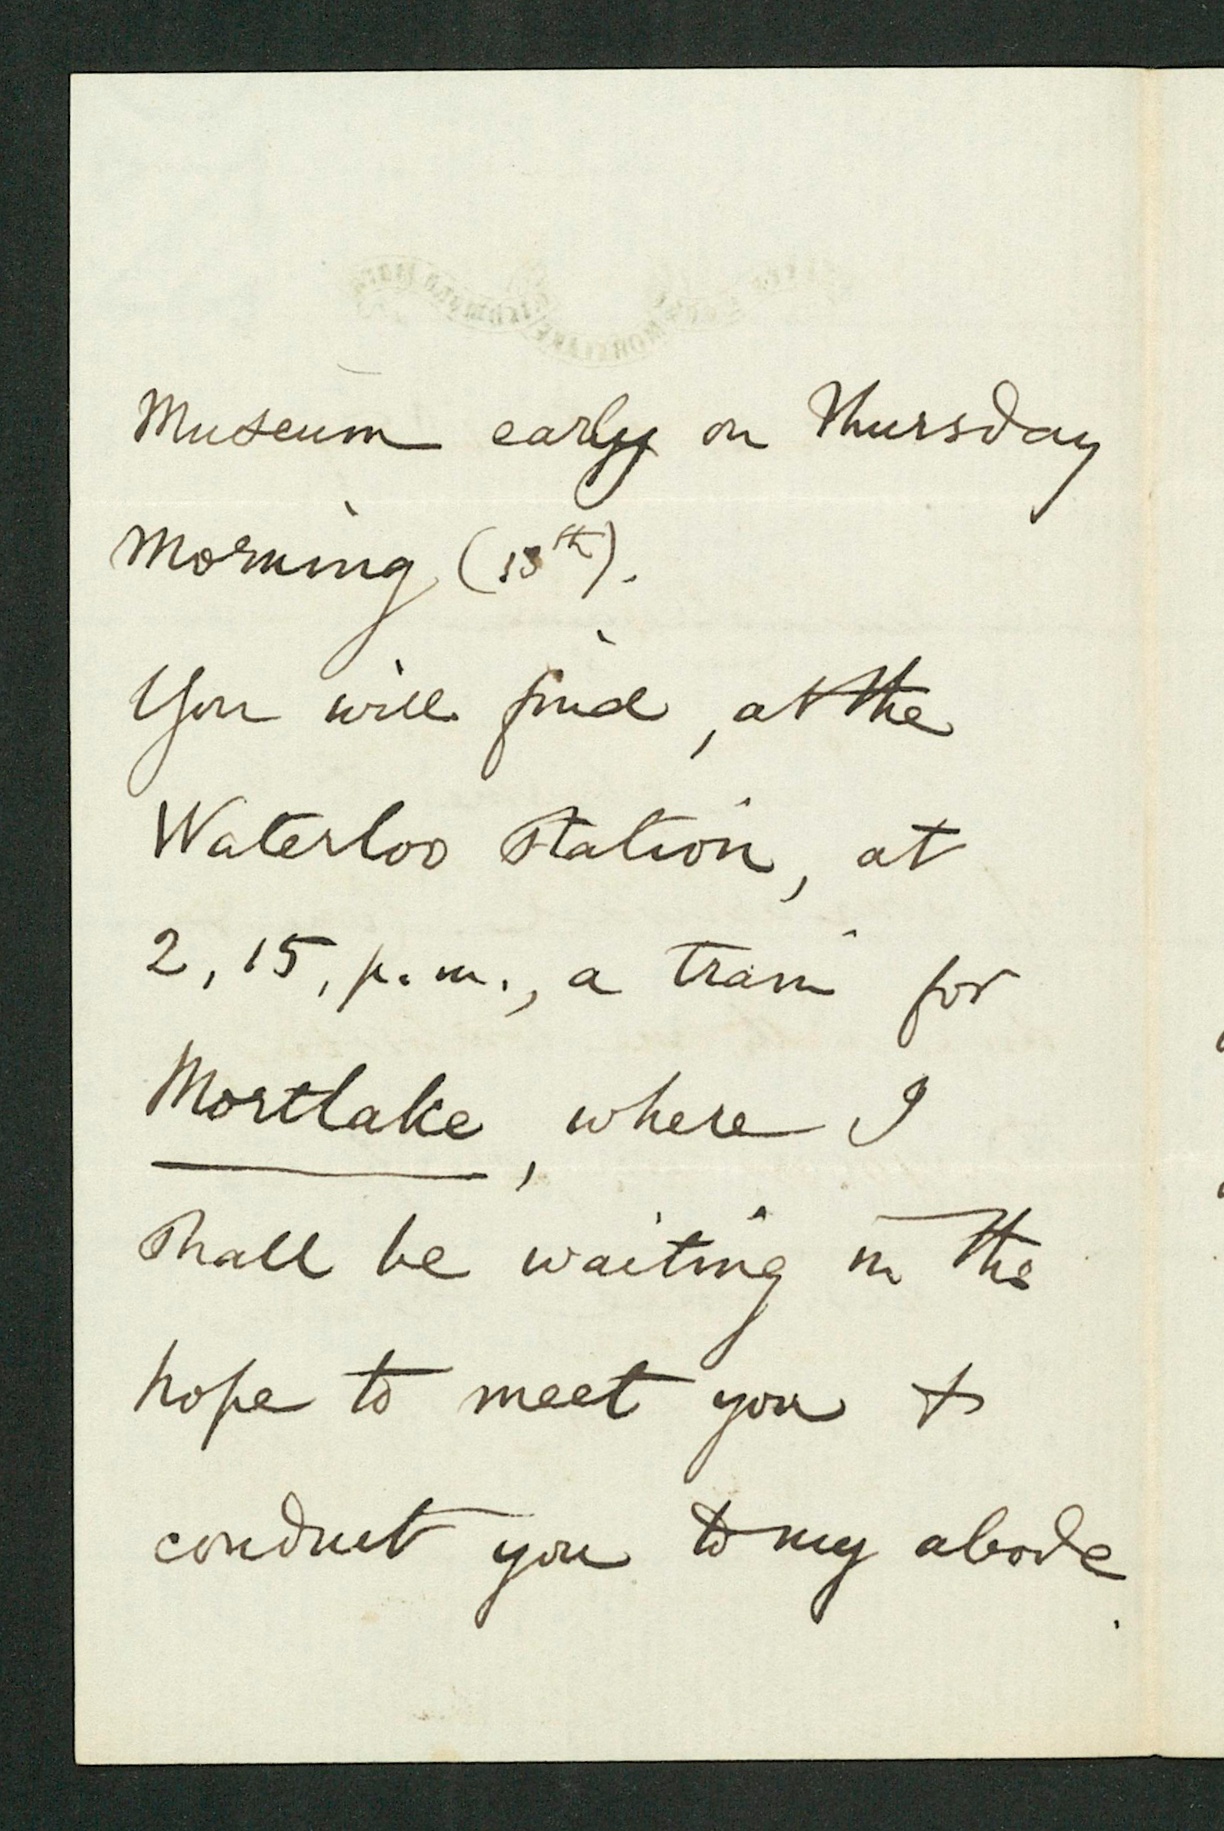 Museum early on Thursday
Morning (13th).
You will find, at the
Waterloo Station, at
2,15, p.m., a train for
Mortlake, where I
shall be waiting in the
hope to meet you &
conduct you to my abode.